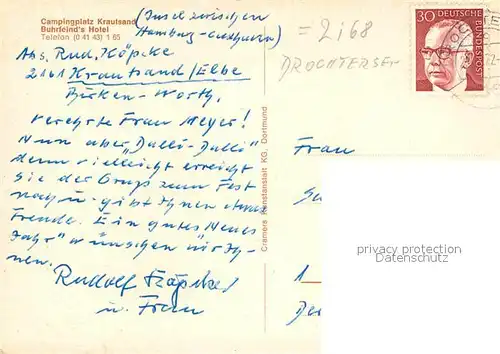 Campingplatz Krautsand
Buhrfeind's Hotel
Telefon (0 41 43) 1 65
(Insel zwischen
Hamburg-Cuxhaven)
= 2168
DROCHTERSEN
30 DEUTSCHE
BUNDESPOST
Abs. Rud. Köpcke
2161 Krautsand/Elbe
Birken-Worth.
Verehrte Frau Meyer!
Nun aber "Dalli-Dalli"
denn vielleicht erreicht
Sie der Gruß zum Fest
noch u. gibt Ihnen etwas
Freude. Ein gutes Neues
Jahr" wünschen wir Ih-
nen.
Rudolf Köpcke
u. Frau
Cramers Kunstanstalt KG, Dortmund
Frau
1
privacy protection
Datenschutz